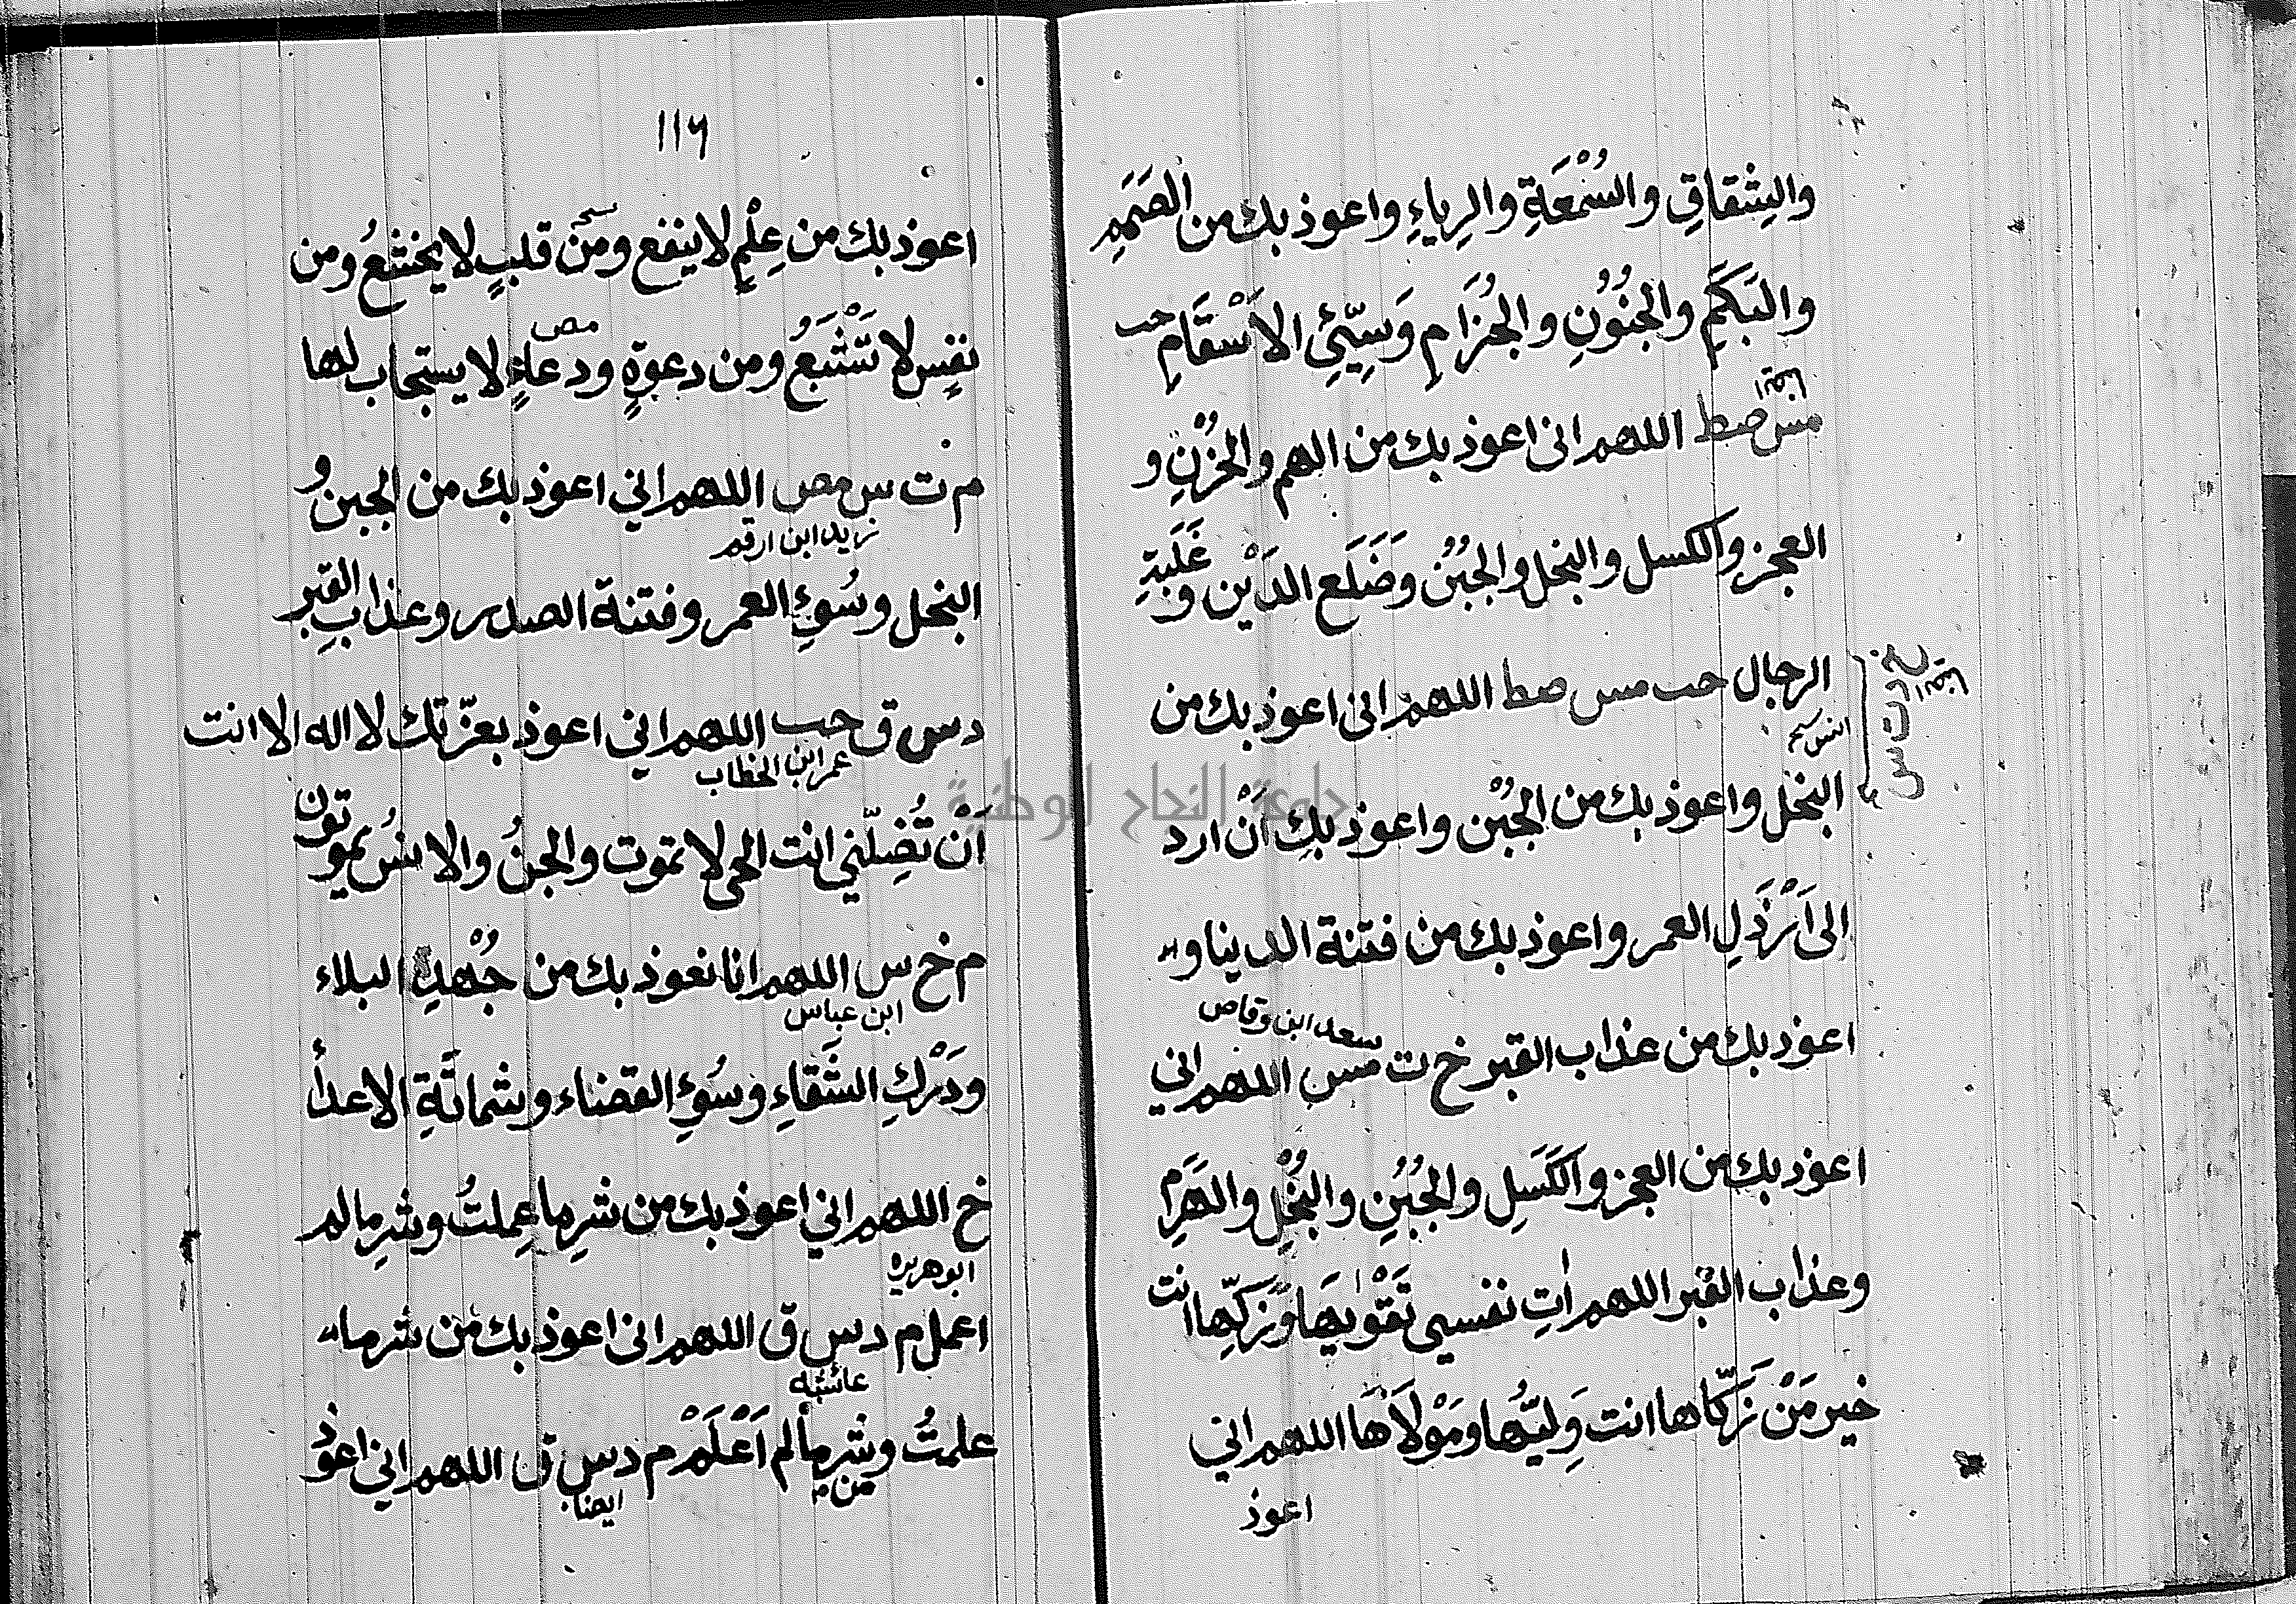 والشِقاقِ والسُّمْعَةِ والرِياءِ واعوذ بك من الصَمَمِ
والبَكَمِ والجُنُوْنِ والجُزَامِ وَسِيّئِ الاَسْقَامِ حب
ايضا
مس صط اللهم انى اعوذ بك من الهم والحُزْنِ و
العجز والكسل والبخل والجُبُن وَضَلَعِ الدَيْنِ وغَلَبَةِ
الرجال حب مس صط اللهم انى اعوذ بك من
خ د ت س
ايضا
انس
البخل واعوذ بك من الجُبْن واعوذ بك اَنْ ارد
الى اَرْذَلِ العمر واعوذ بك من فتنة الدينا و
سعد ابن وقاص
اعوذ بك من عذاب القبر خ ت مس اللهم اني
اعوذ بك من العجز والكَسَلِ والجُبُنِ والبُخْلِ والهَرَمِ
وعذاب القبر اللهم اٰتِ نفسي تَقْوٰيهَا وَزَكِّها انت
خير مَنْ زَكّاها انت وَليُّها ومَوْلَاهَا اللهم اني
اعوذ
١١٦
اعوذ بك من عِلْمٍ لا ينفع ومن قلبٍ لا يخشعُ ومن
نفسٍ لا تَشْبَعُ ومن دعوةٍ ودعاءٍ لا يستجاب لها
مص
م ت س مص اللهم اني اعوذ بك من الجبن و
زيد ابن ارقم
البخل وسُوءِ العمر وفتنة الصدر وعذابِ القبر
د س ق حب اللهم اني اعوذ بعزّتك لا اله الا انت
عمر ابن الخطاب
اَنْ تُضِلّني انت الحى لا تموت والجنُ والانسُ يموتون
م خ س اللهم انا نعوذ بك من جُهْدِ البلاء
ابن عباس
ودَرْكِ الشَقاءِ وسُوءِ القضاء وشماتَةِ الاعدأ
خ اللهم اني اعوذ بك من شرِ ما عِملتُ وشرِ ما لم
ابو هريره
اعمل م د س ق اللهم انى اعوذ بك من شر ما
عائشه
علمتُ وشرِ ما لم اَعْلَمْ م د س ق اللهم اني اعوذ
من م
ايضا
جامعة النجاح الوطنية